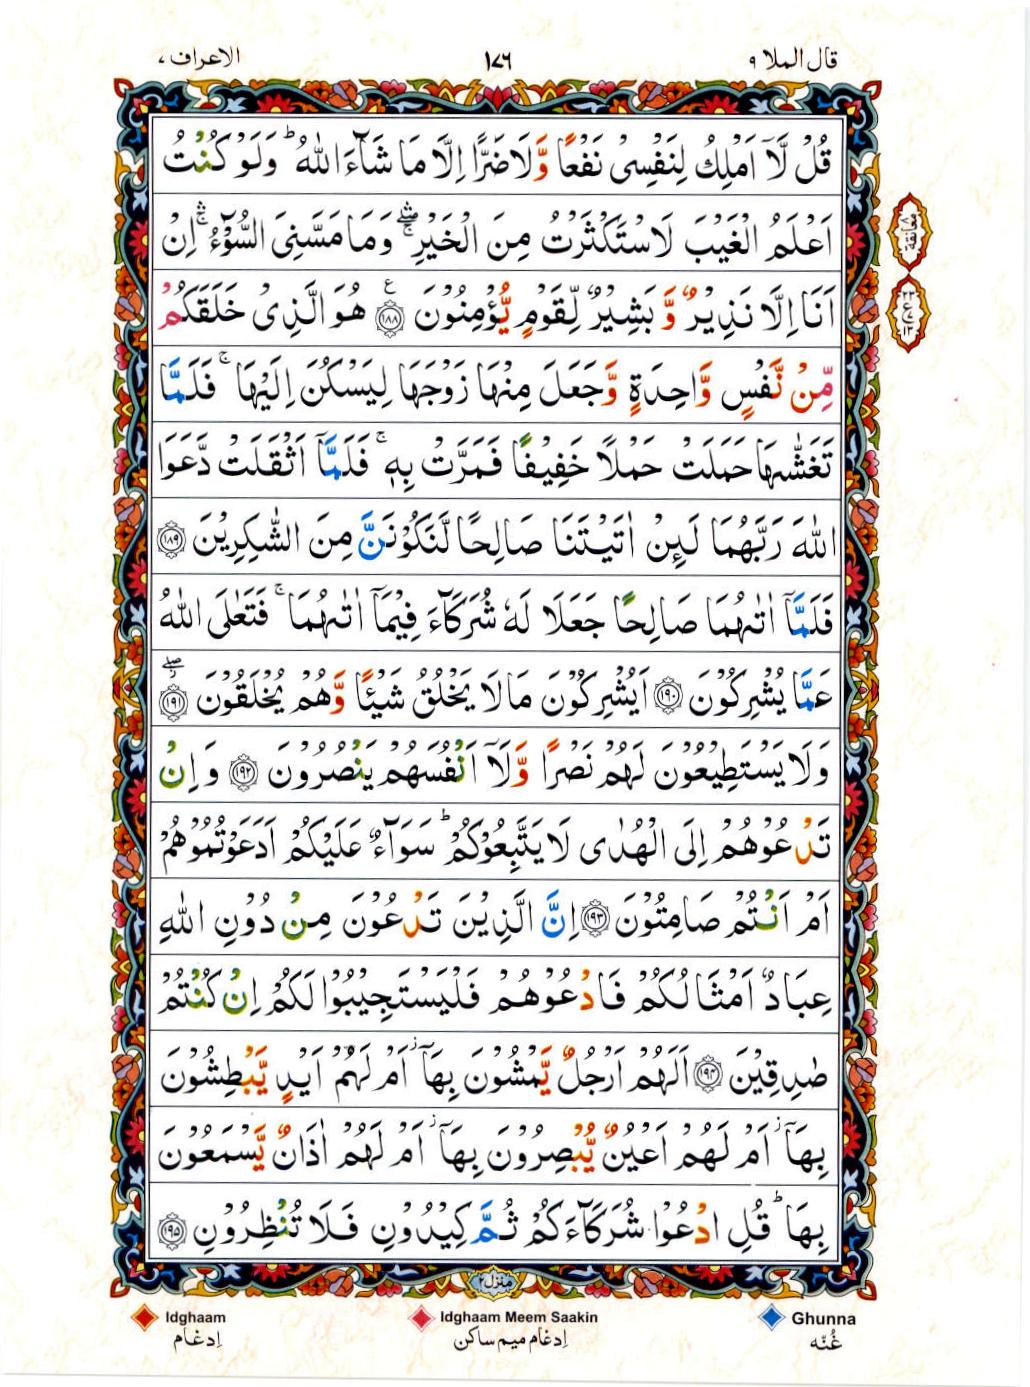 قال الملا ٩
١٧٦
الاعراف ٧
قُلْ لَّاۤ اَمْلِكُ لِنَفْسِیْ نَفْعًا وَّلَا ضَرًّا اِلَّا مَا شَآءَ اللّٰهُ ؕ وَلَوْ كُنْتُ
اَعْلَمُ الْغَیْبَ لَاسْتَكْثَرْتُ مِنَ الْخَیْرِ ۛۖۚ وَمَا مَسَّنِیَ السُّوْٓءُ ۛۚ اِنْ
معانقة
اَنَا اِلَّا نَذِیْرٌ وَّ بَشِیْرٌ لِّقَوْمٍ یُّؤْمِنُوْنَ ﴿۱۸۸﴾ ع هُوَ الَّذِیْ خَلَقَكُمْ
مِّنْ نَّفْسٍ وَّاحِدَةٍ وَّجَعَلَ مِنْهَا زَوْجَهَا لِیَسْكُنَ اِلَیْهَا ۚ فَلَمَّا
تَغَشّٰىهَا حَمَلَتْ حَمْلًا خَفِیْفًا فَمَرَّتْ بِهٖ ۚ فَلَمَّاۤ اَثْقَلَتْ دَّعَوَا
اللّٰهَ رَبَّهُمَا لَىِٕنْ اٰتَیْتَنَا صَالِحًا لَّنَكُوْنَنَّ مِنَ الشّٰكِرِیْنَ ﴿۱۸۹﴾
فَلَمَّاۤ اٰتٰىهُمَا صَالِحًا جَعَلَا لَهٗ شُرَكَآءَ فِیْمَاۤ اٰتٰىهُمَا ۚ فَتَعٰلَی اللّٰهُ
عَمَّا یُشْرِكُوْنَ ﴿۱۹۰﴾ اَیُشْرِكُوْنَ مَا لَا یَخْلُقُ شَیْـًٔا وَّهُمْ یُخْلَقُوْنَ ﴿۱۹۱﴾ ۖ
وَلَا یَسْتَطِیْعُوْنَ لَهُمْ نَصْرًا وَّلَاۤ اَنْفُسَهُمْ یَنْصُرُوْنَ ﴿۱۹۲﴾ وَاِنْ
تَدْعُوْهُمْ اِلَی الْهُدٰی لَا یَتَّبِعُوْكُمْ ؕ سَوَآءٌ عَلَیْكُمْ اَدَعَوْتُمُوْهُمْ
اَمْ اَنْتُمْ صَامِتُوْنَ ﴿۱۹۳﴾ اِنَّ الَّذِیْنَ تَدْعُوْنَ مِنْ دُوْنِ اللّٰهِ
عِبَادٌ اَمْثَالُكُمْ فَادْعُوْهُمْ فَلْیَسْتَجِیْبُوْا لَكُمْ اِنْ كُنْتُمْ
صٰدِقِیْنَ ﴿۱۹۴﴾ اَلَهُمْ اَرْجُلٌ یَّمْشُوْنَ بِهَاۤ ؗ اَمْ لَهُمْ اَیْدٍ یَّبْطِشُوْنَ
بِهَاۤ ؗ اَمْ لَهُمْ اَعْیُنٌ یُّبْصِرُوْنَ بِهَاۤ ؗ اَمْ لَهُمْ اٰذَانٌ یَّسْمَعُوْنَ
بِهَا ؕ قُلِ ادْعُوْا شُرَكَآءَكُمْ ثُمَّ كِیْدُوْنِ فَلَا تُنْظِرُوْنِ ﴿۱۹۵﴾
منزل ٢
Idghaam
اِدغام
Idghaam Meem Saakin
اِدغام میم ساکن
Ghunna
غُنّه